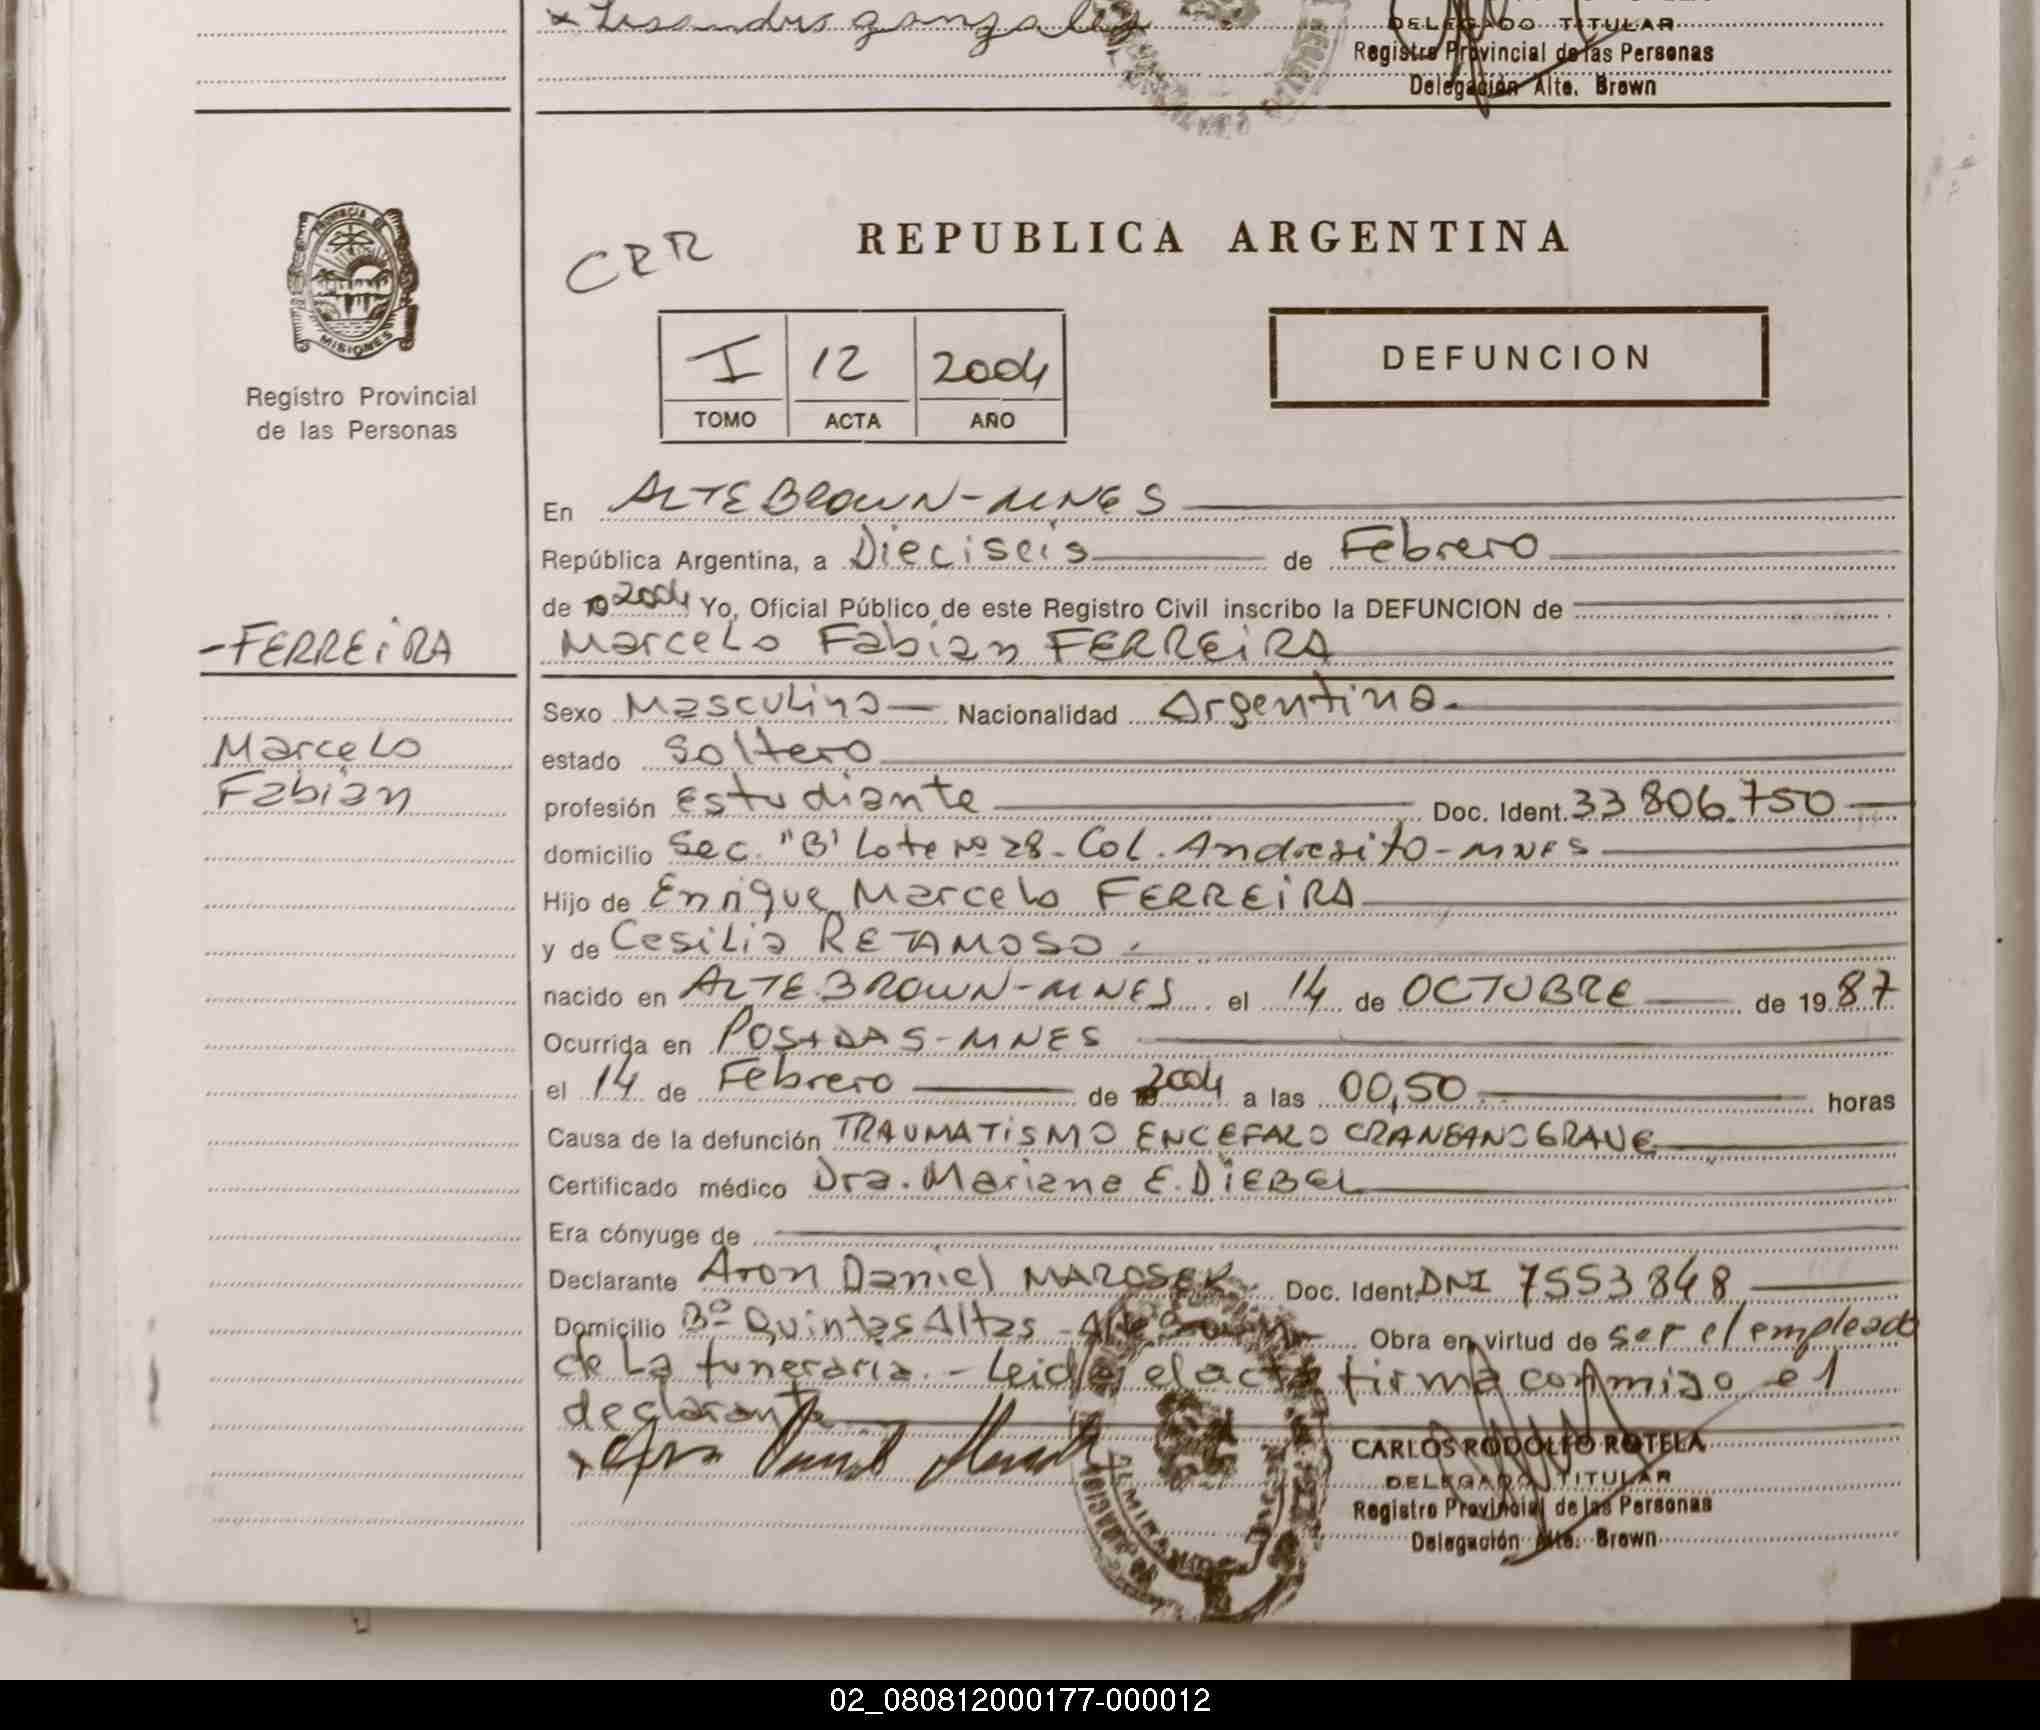 x Lisandro gonzalez
DELEGADO TITULAR
Registro Provincial de las Personas
Delegación Alte. Brown
PROVINCIA DE
MISIONES
Registro Provincial
de las Personas
CRR
REPUBLICA ARGENTINA
I 12 2004
TOMO ACTA AÑO
DEFUNCION
En ALTE BROWN-MNES
República Argentina, a Dieciseis de Febrero
de 2004 Yo, Oficial Público de este Registro Civil inscribo la DEFUNCION de
-FERREIRA
Marcelo Fabian FERREIRA
Sexo Masculino Nacionalidad Argentina.
Marcelo
estado Soltero
Fabian
profesión Estudiante Doc. Ident. 33 806.750
domicilio Sec. "B" Lote Nº 28- Col. Andresito-MNES
Hijo de Enrique Marcelo FERREIRA
y de Cesilia RETAMOSO.
nacido en ALTE BROWN-MNES el 14 de OCTUBRE de 1987
Ocurrida en POSADAS-MNES
el 14 de Febrero de 2004 a las 00,50 horas
Causa de la defunción TRAUMATISMO ENCEFALO CRANEANO GRAVE
Certificado médico Dra. Mariana E. DIEBEL
Era cónyuge de
Declarante Aron Daniel MAROSEK Doc. Ident. DNI 7553848
Domicilio Bº Quintas Altas - Alte Brown Obra en virtud de ser el empleado
de La funeraria. - Leida el acta firma conmigo el
declarante
CARLOS RODOLFO ROTELA
DELEGADO TITULAR
Registro Provincial de las Personas
Delegación Alte. Brown
02_080812000177-000012